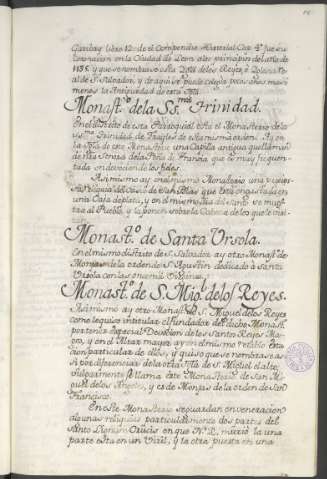 Garibay libro 12. de el Compendio Historial Cap. 4º fue su
Coronacion en la Ciudad de Leon a los principios del año de
1135. y que se nombrase esta Yglª de los Reyes, o Yglesia Re-
al de Sⁿ Salvador, y de aqui se puede colegir pocos años mas o
menos la Antiguedad de esta Yglª
Monastº de la Ssᵐᵃ Trinidad.
En el distrito de esta Parroquia está el Monasterio de la
Trinidad de Frayles de la misma orden. Ay en
la Yglª de este Monasterio una Capilla antigua que llaman
de Nra Señora de la Peña de Francia que es muy frequen-
tada con devocion de los fieles.
Asimismo ay en el mismo Monasterio una
Reliquia del de San Blas que está engastada en
una Caxa de plata, y en el mismo dia del Santo se mues-
tra al Pueblo y la ponen sobre la Cabeza de los que le visi-
tan.
Monastº de Santa Ursola.
En el mismo distrito de S. Salvador ay otro Monastº de
Monjas de la orden de Sⁿ Agustin dedicado a Santa
Ursola con las once mil Virgines.
Monastº de S. Migˡ de los Reyes.
Asimismo ay otro Monastº de S. Miguel de los Reyes
como le quiso intitular el fundador del dicho Monastº
por tener especial Devocion de los Santos Reyes Ma-
gos, y en el Altar mayor ay en el mismo Retablo
cion particular de ellos, y quiso que se nombrase a-
si por diferenciar de la otra Yglª de S. Miguel el alto,
vulgarmente se llama este Monasterio de San Mi-
guel de los Angeles, y es de Monjas de la orden de San
Francisco.
En este Monasterio se guardan en veneracion
algunas reliquias particularmente dos partes del
Santo Lignum Crucis en que N. R. murió la una
parte esta en un Viril, y la otra puesta en una